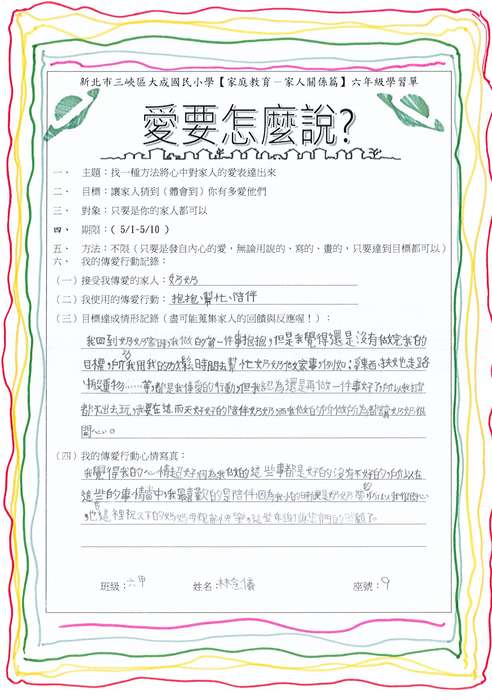 新北市三峽區大成國民小學【家庭教育－家人關係篇】六年級學習單
愛要怎麼說?
一、 主題：找一種方法將心中對家人的愛表達出來
二、 目標：讓家人猜到（體會到）你有多愛他們
三、 對象：只要是你的家人都可以
四、 期限：( 5/1~5/10 )
五、 方法：不限（只要是發自內心的愛，無論用說的、寫的、畫的，只要達到目標都可以）
六、 我的傳愛行動記錄：
（一）接受我傳愛的家人：奶奶
（二）我使用的傳愛行動：抱抱、幫忙、陪伴
（三）目標達成情形記錄（盡可能蒐集家人的回饋與反應喔！）：
我回到奶奶家時我做的第一件事抱抱，但是我覺得還是沒有做完我的
目標，所以我用我的功課時間去幫忙奶奶做家事例如：扶她走路
重物……等都是我傳愛的行動，但我認為還是再做一件事好了所以我
都不出去玩，我要在這兩天好好的陪伴奶奶，而我做的所作所為都讓奶奶很
開心。
（四）我的傳愛行動心情寫真：
我覺得我的心情超好因為我做的這些事都是好的沒有不好的，所以在
這些的事情當中我最喜歡的是陪伴因為我小的時候是奶奶
在這裡祝天下的奶奶母親節快樂，這些年謝謝您們的照顧了。
班級：六甲 姓名：林 儀 座號：9